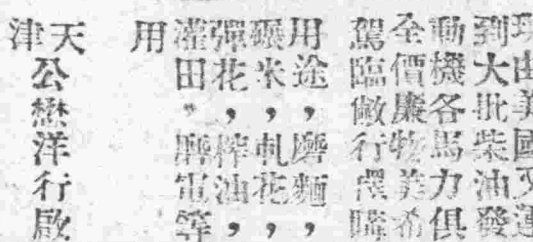 現由美國又運
到大批柴油發
動機各馬力俱
全價廉物美希
駕臨敝行選購
用途，磨麵，
碾米，軋花，
彈花，榨油，
灌田，磨電等
用
天公懋洋行啟
津